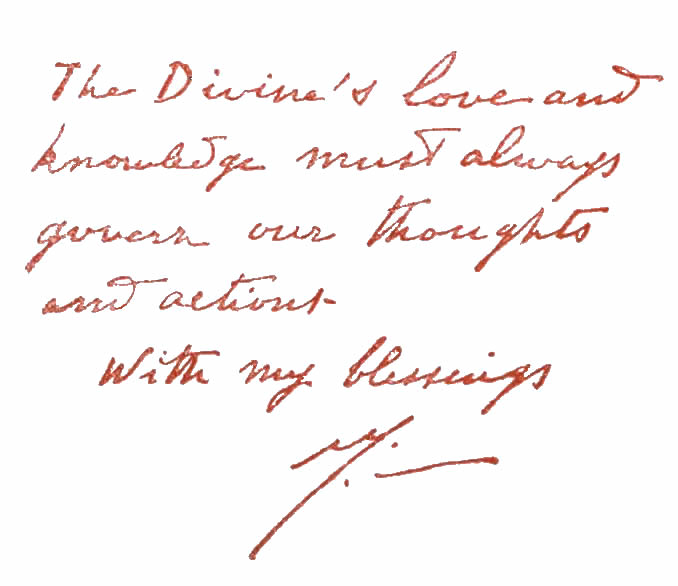 The Divine's love and
knowledge must always
govern our thoughts
and actions
With my blessings